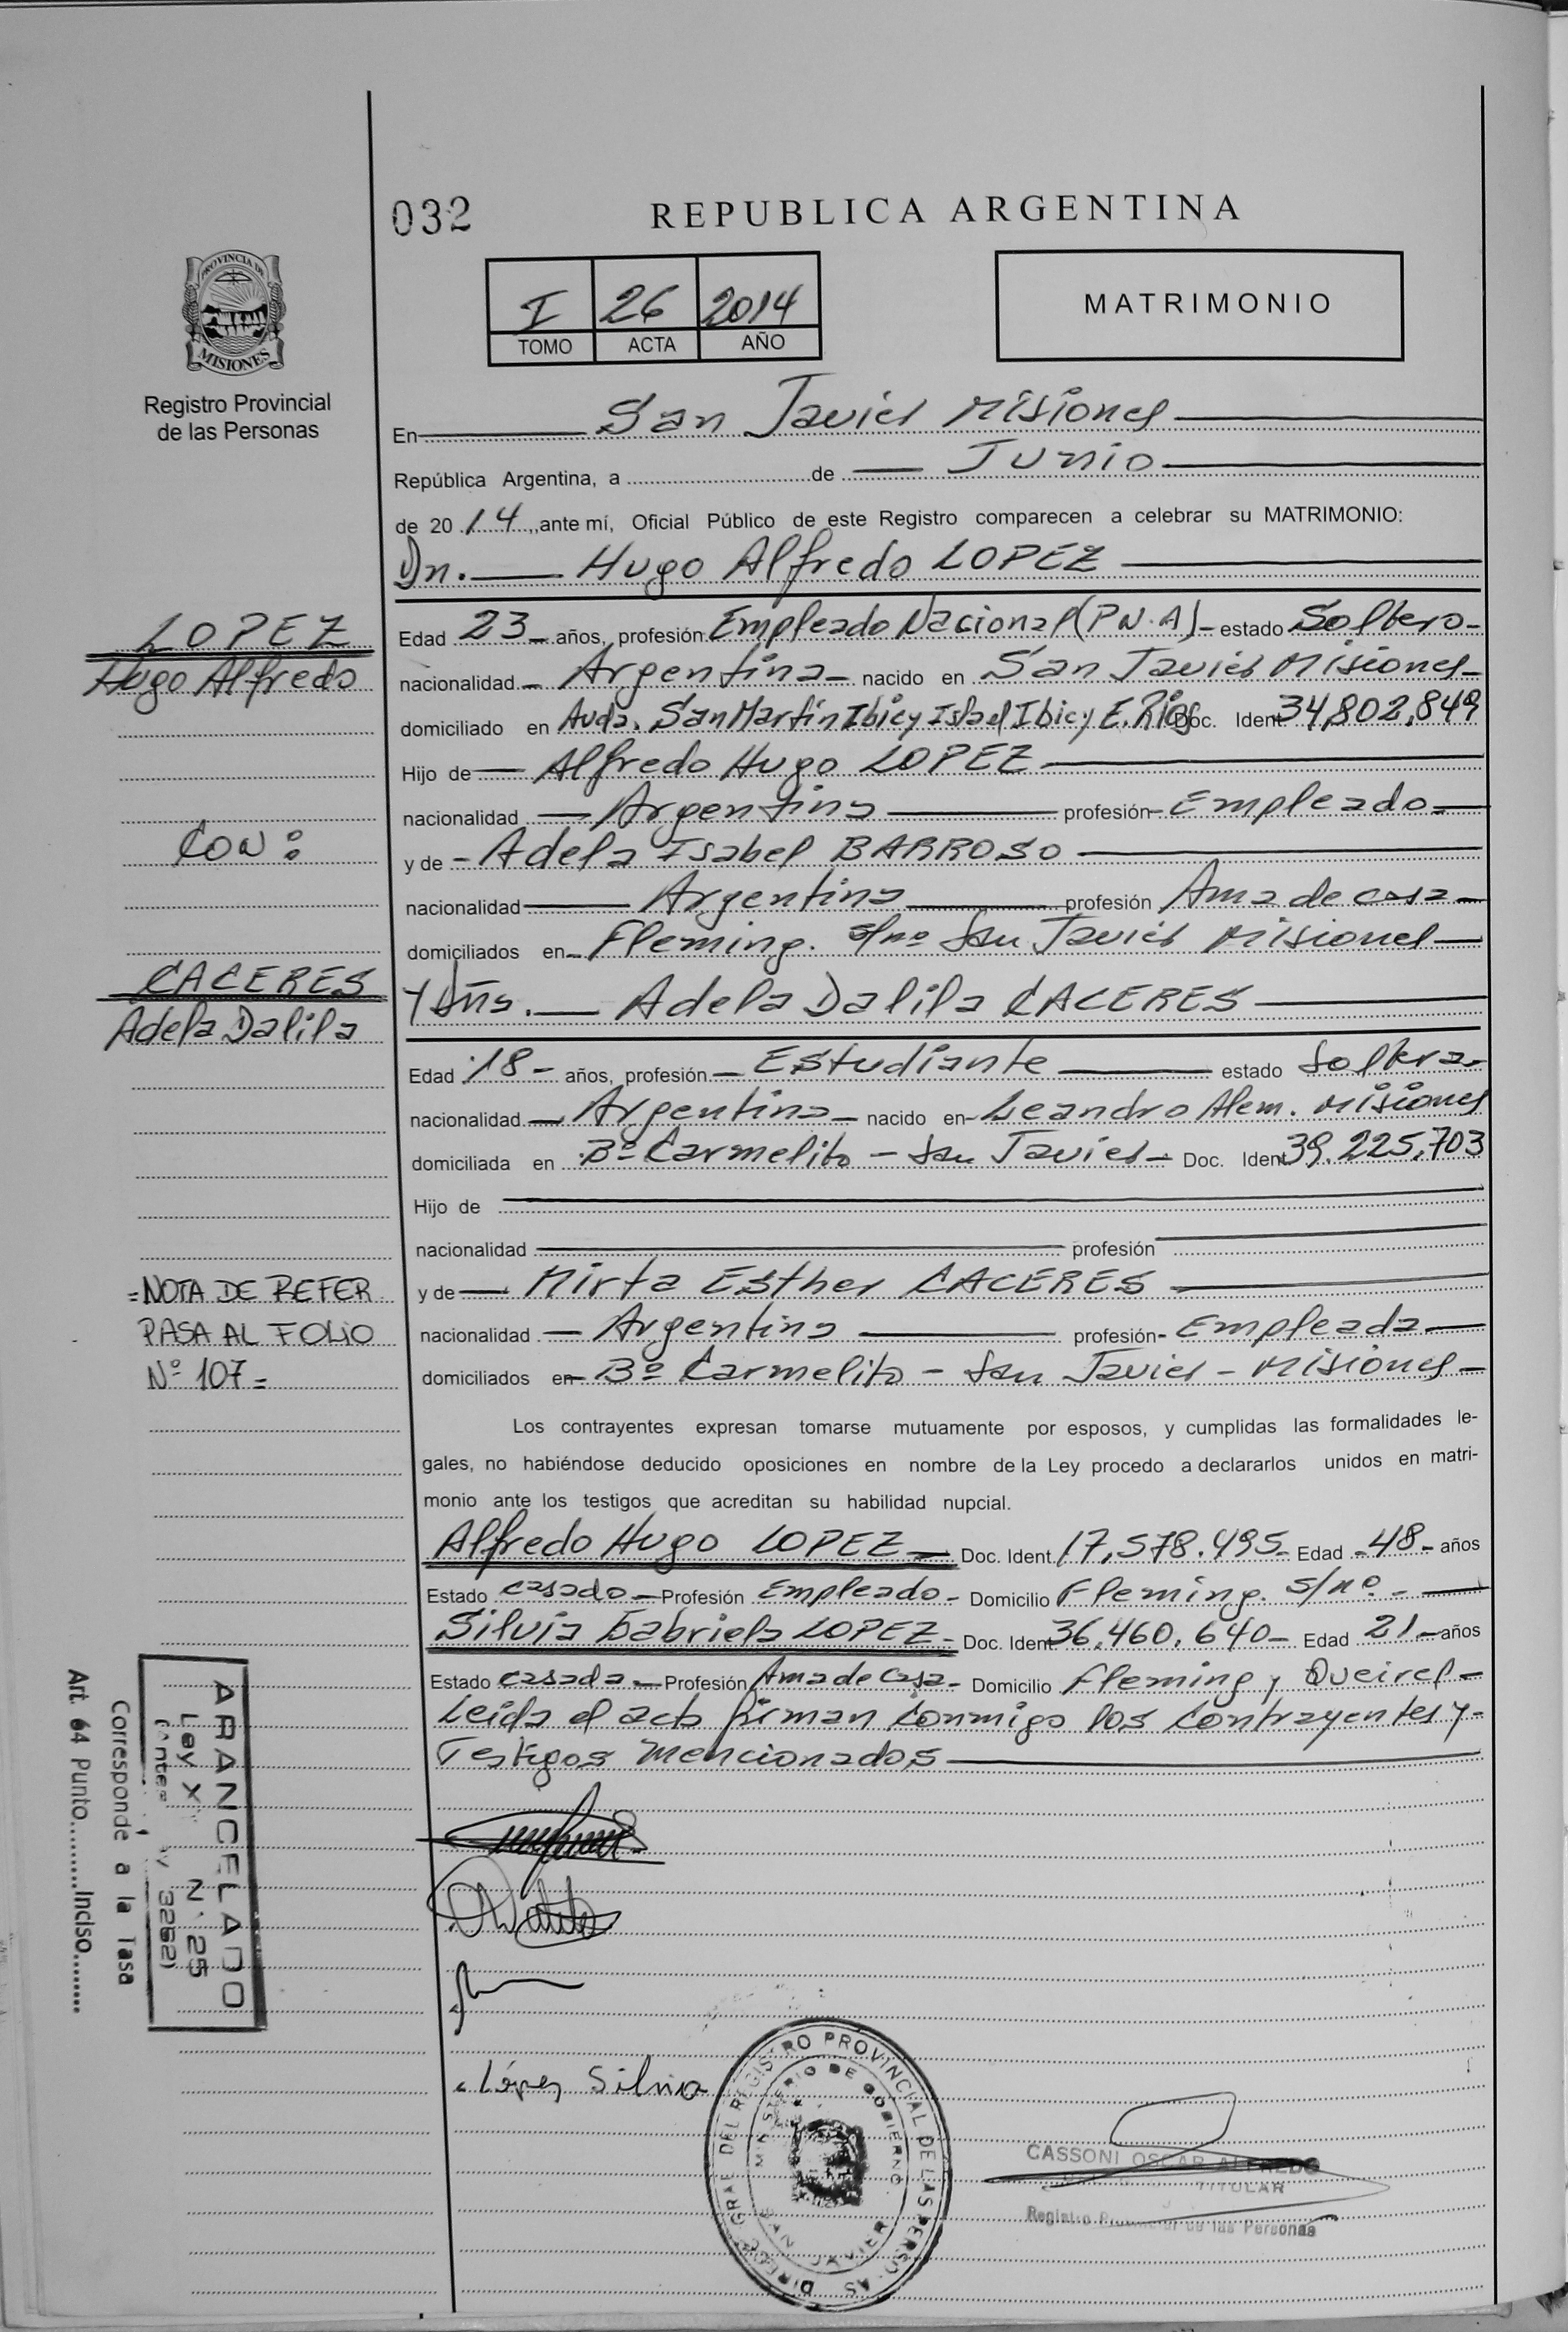 032
REPUBLICA ARGENTINA
PROVINCIA DE
MISIONES
Registro Provincial
de las Personas
I 26 2014
TOMO ACTA AÑO
MATRIMONIO
En San Javier Misiones
República Argentina, a de Junio
de 2014, ante mí, Oficial Público de este Registro comparecen a celebrar su MATRIMONIO:
Dn. Hugo Alfredo LOPEZ
LOPEZ
Hugo Alfredo
Edad 23 años, profesión Empleado Nacional (P.N.A) estado Soltero
nacionalidad Argentina nacido en San Javier Misiones
domiciliado en Avda. San Martin Ibicy Israel Ibicy E. Rios Doc. Ident. 34,802,849
Hijo de Alfredo Hugo LOPEZ
nacionalidad Argentina profesión Empleado
CON:
y de Adela Isabel BARROSO
nacionalidad Argentina profesión Ama de casa
domiciliados en Fleming. s/nº San Javier Misiones
CACERES
Adela Dalila
Y Dña. Adela Dalila CACERES
Edad 18 años, profesión Estudiante estado Soltera
nacionalidad Argentina nacido en Leandro Alem. Misiones
domiciliada en Bº Carmelito - San Javier Doc. Ident. 39.225,703
Hijo de
nacionalidad profesión
=NOTA DE REFER
PASA AL FOLIO
Nº 107=
y de Mirta Esther CACERES
nacionalidad Argentina profesión Empleada
domiciliados en Bº Carmelito - San Javier - Misiones
Los contrayentes expresan tomarse mutuamente por esposos, y cumplidas las formalidades le-
gales, no habiéndose deducido oposiciones en nombre de la Ley procedo a declararlos unidos en matri-
monio ante los testigos que acreditan su habilidad nupcial.
Alfredo Hugo LOPEZ Doc. Ident. 17,578.495 Edad 48 años
Estado casado Profesión Empleado Domicilio Fleming. s/nº
Silvia Gabriela LOPEZ Doc. Ident. 36,460,640 Edad 21 años
Estado casada Profesión Ama de Casa Domicilio Fleming y Queirel
Leida el acta firman conmigo los contrayentes y
Testigos mencionados
López Silvia
ARANCELADO
Ley X Nº 25
3262)
Corresponde a la Tasa
Art. 64 Punto.........Inciso........
REGISTRO PROVINCIAL DE LAS PERSONAS
MINISTERIO DE GOBIERNO
SAN JAVIER
CASSONI OSCAR ALFREDO
TITULAR
Registro Provincial de las Personas